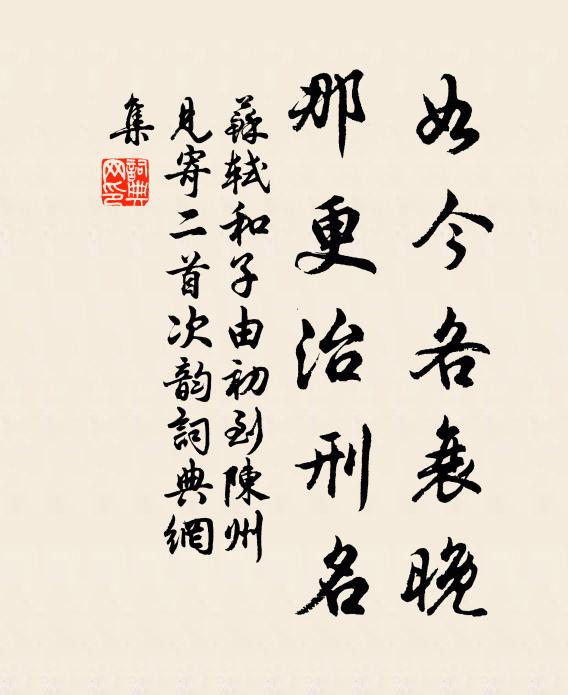 如今各衰晚
那更治刑名
蘇軾和子由初到陳州
見寄二首次韵詞典網
集
詞典網印